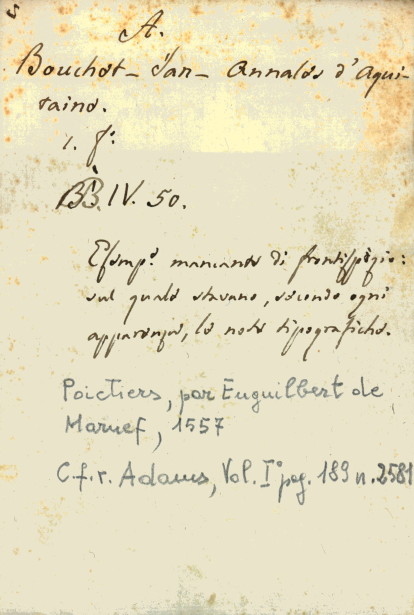 A.
Bouchet - Jan - Annales d'Aqui-
taine.
1. fº
BB. IV. 50.
Esempº mancante di frontispizio:
sul quale stavano, secondo ogni
apparenza, le note tipografiche.
Poictiers, par Euguilbert de
Marnef, 1557
C.f.r. Adams, Vol. Iº pag. 189 n. 2581